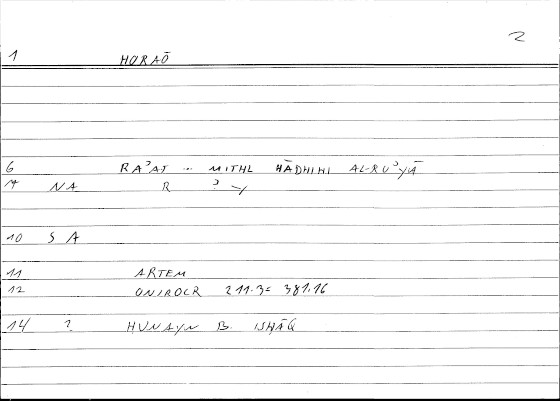 2
1 HORAŌ
6 RAʾAT .. MITHL HĀDHIHI AL-RUʾYĀ
17 NA R ʾ Y
10 S A
11 ARTEM
12 ONIROCR 211.3 = 381.16
14 ? HUNAYN B. ISHĀQ